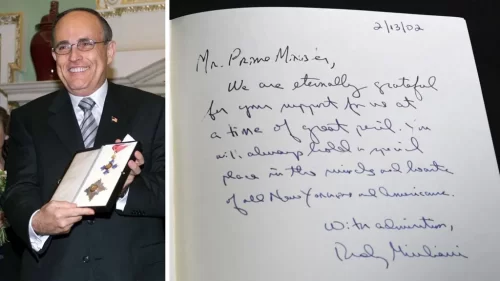 2/13/02
Mr. Prime Minister,
We are eternally grateful
for your support for us at
a time of great peril. You
will always hold a special
place in the minds and hearts
of all New Yorkers and Americans.
With admiration,
Rudy Giuliani